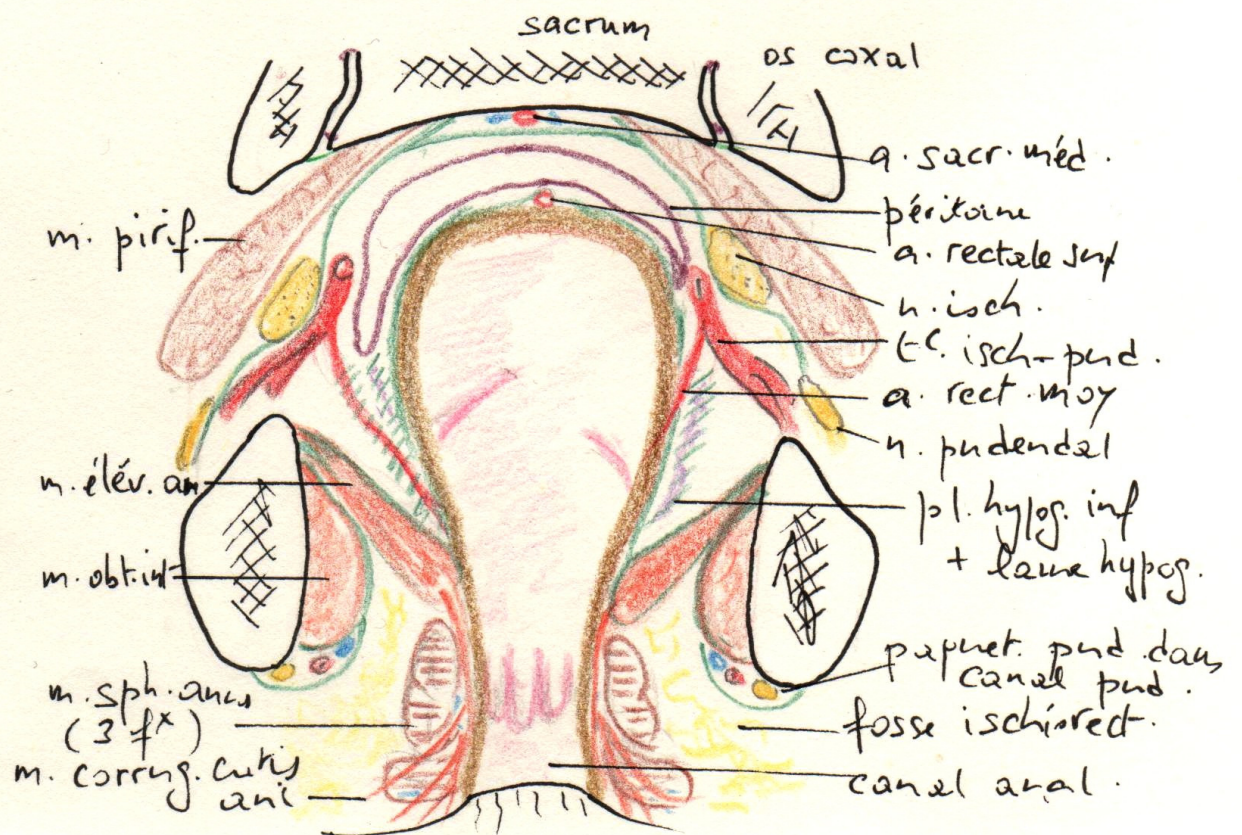 sacrum
os coxal
a. sacr. méd.
péritoine
a. rectale sup
n. isch.
tc. isch-pud.
a. rect. moy
n. pudendal
pl. hypog. inf
+ lame hypog.
paquet. pud. dans
canal pud.
fosse ischiorect.
canal anal.
m. pirif.
m. élév. an
m. obt. int
m. sph. anus
(3 fx)
m. corrug. cutis
ani